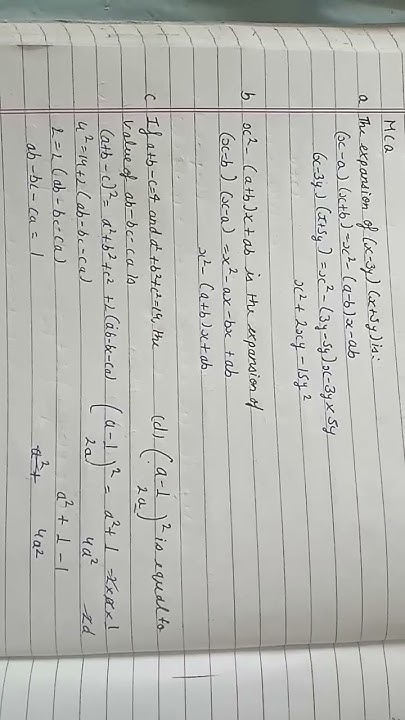 MCQ
a The expansion of (x-3y) (x+5y) is:
(x-a) (x+b) = x² - (a-b)x - ab
(x-3y) (x+5y) = x² - (3y-5y)x - 3y×5y
x² + 2xy - 15y²
b x² - (a+b)x + ab is the expansion of
(x-b) (x-a) = x² - ax - bx + ab
x² - (a+b)x + ab
c If a+b-c=4 and a²+b²+c²=14, the
value of ab-bc-ca is
(a+b-c)² = a²+b²+c² + 2(ab-bc-ca)
4² = 14 + 2(ab-bc-ca)
2 = 2(ab-bc-ca)
ab-bc-ca = 1
(d) (a-1/2a)² is equal to
(a-1/2a)² = a² + 1/4a² - 2×a×1/2a
a² + 1/4a² - 1